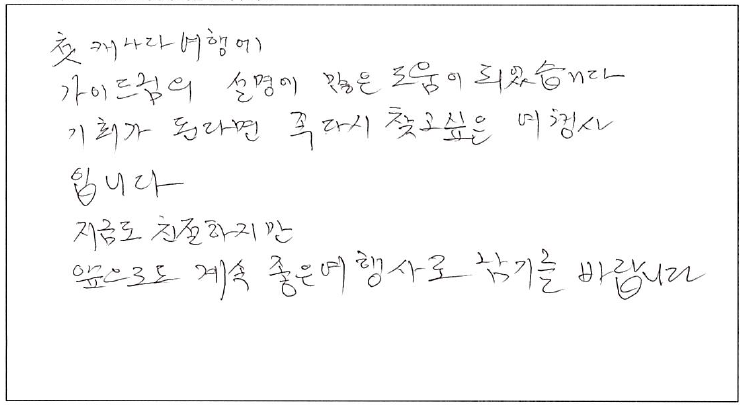 첫 캐나다 여행에
가이드님의 설명에 많은 도움이 되었습니다
기회가 된다면 꼭 다시 찾고싶은 여행사
입니다
지금도 친절하지만
앞으로도 계속 좋은여행사로 남기를 바랍니다